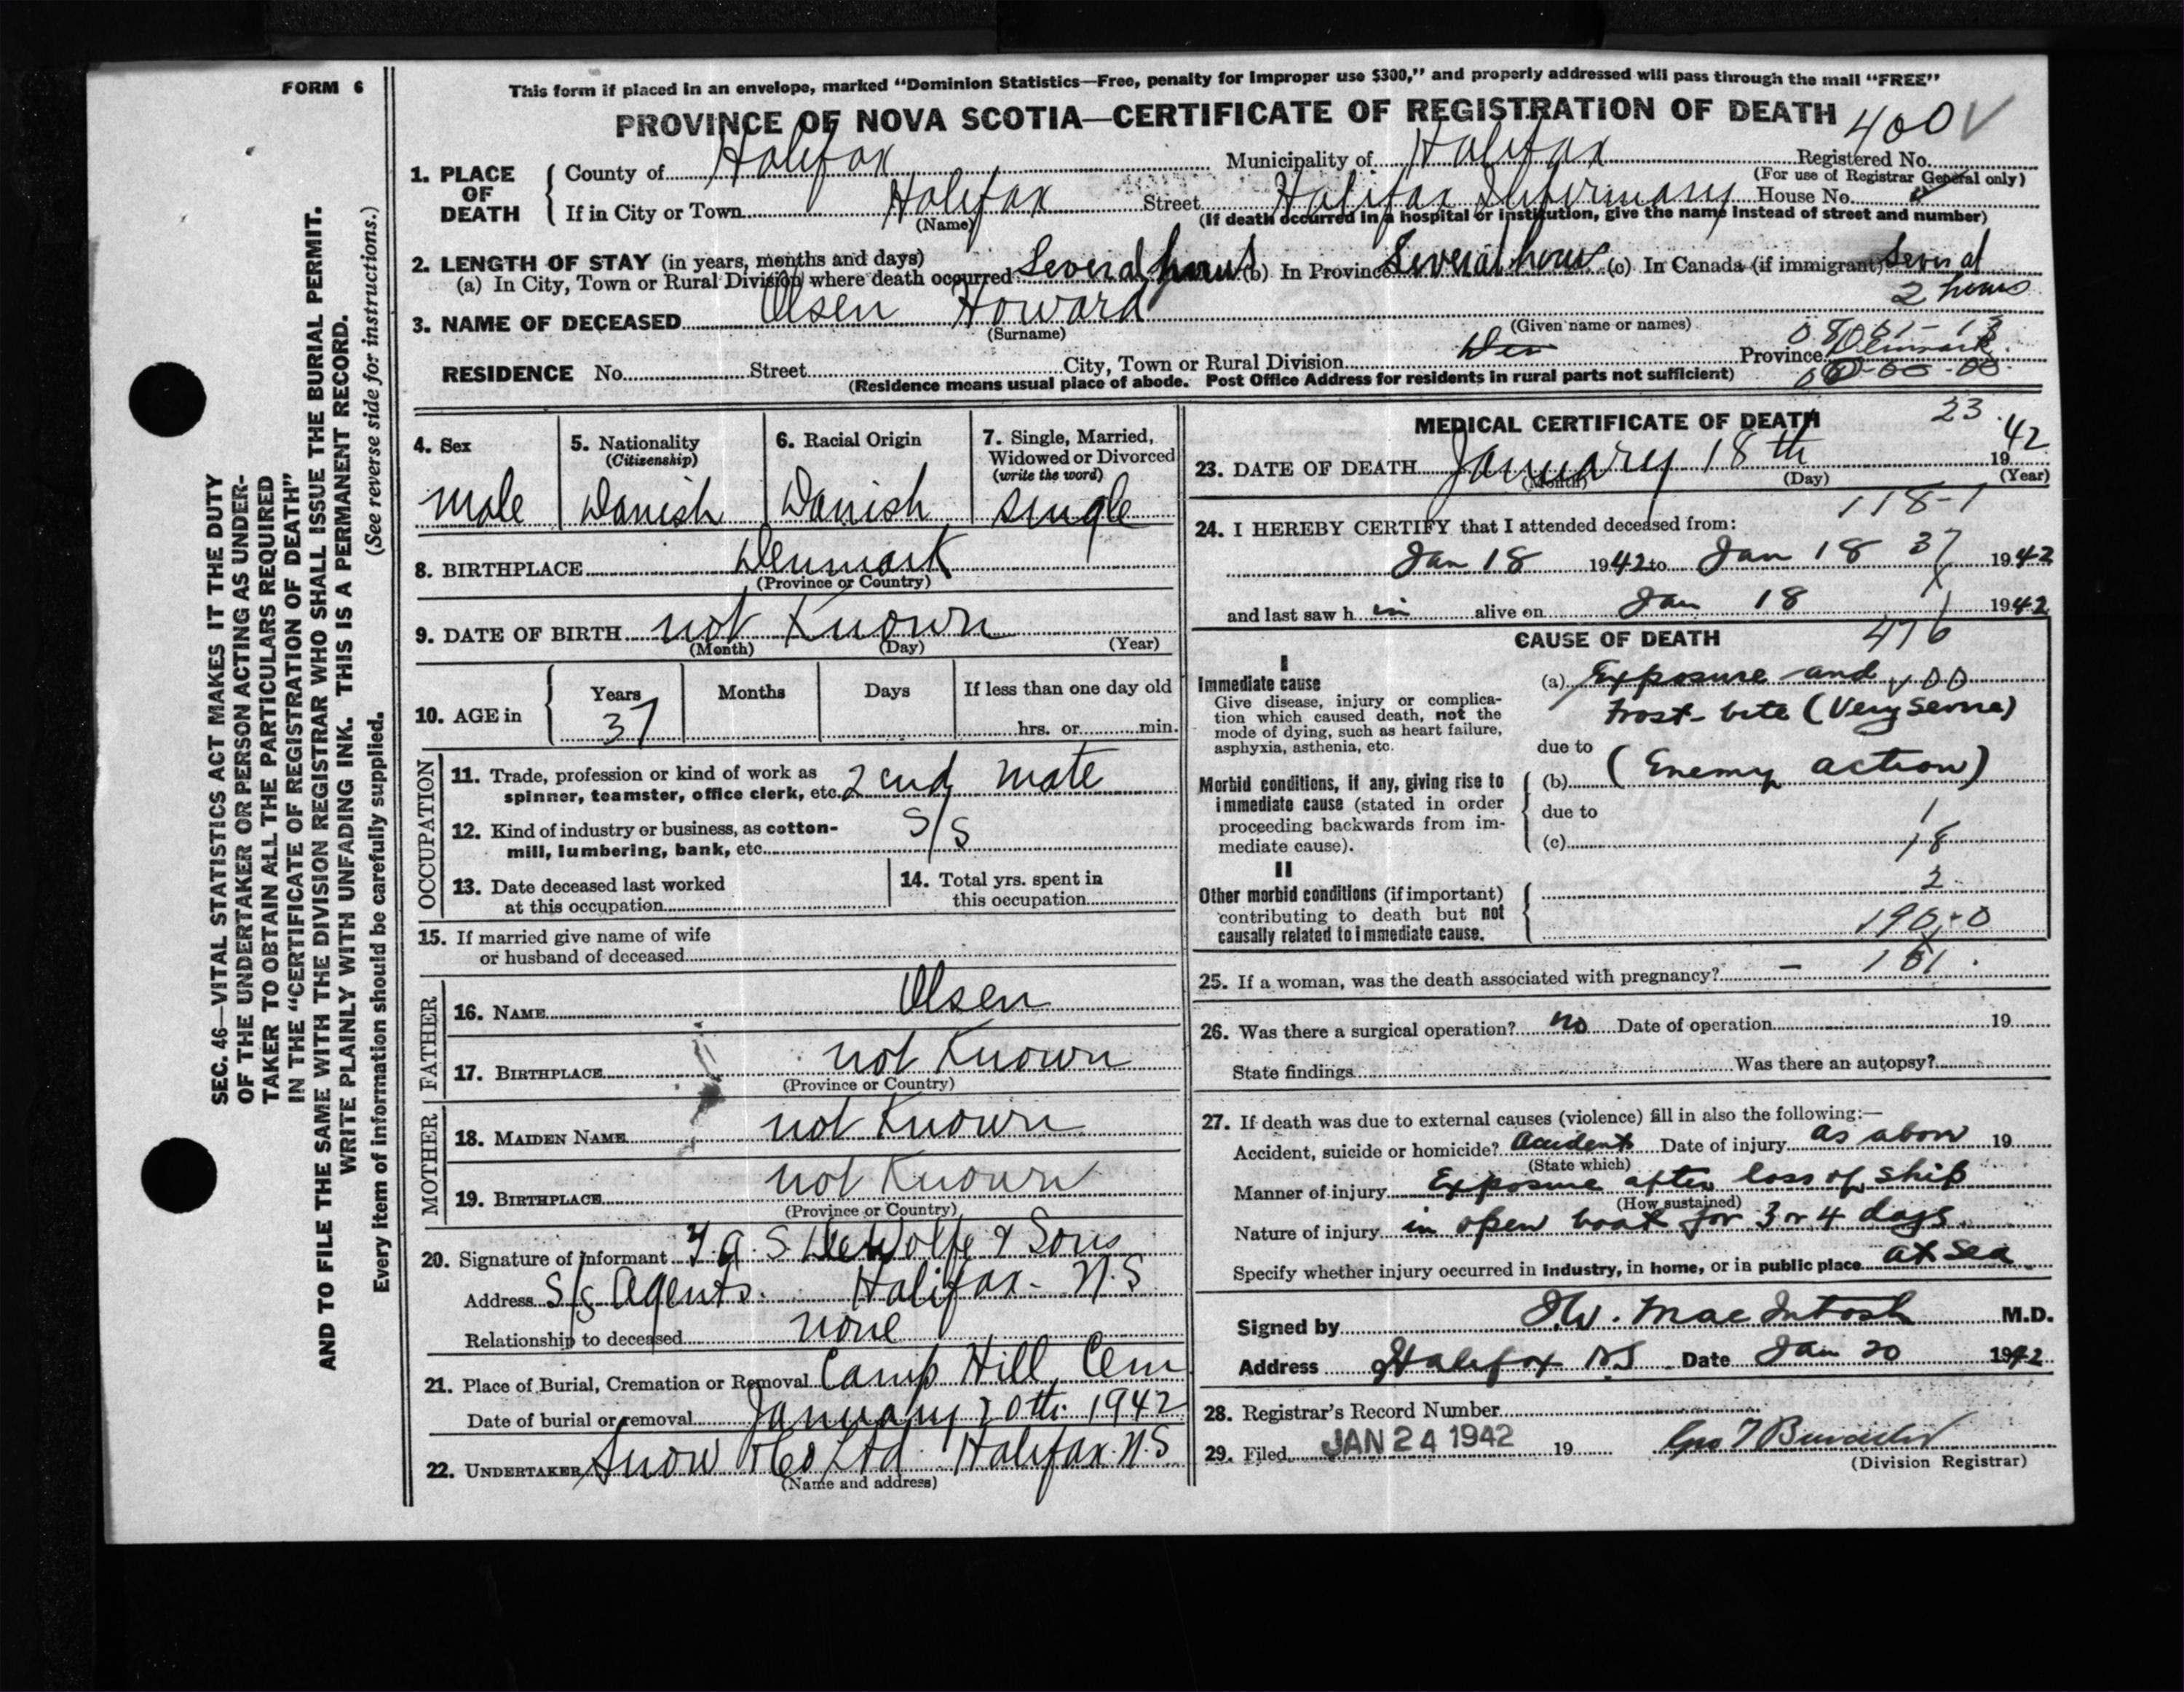 FORM 6
SEC. 46—VITAL STATISTICS ACT MAKES IT THE DUTY
OF THE UNDERTAKER OR PERSON ACTING AS UNDER-
TAKER TO OBTAIN ALL THE PARTICULARS REQUIRED
IN THE "CERTIFICATE OF REGISTRATION OF DEATH"
AND TO FILE THE SAME WITH THE DIVISION REGISTRAR WHO SHALL ISSUE THE BURIAL PERMIT.
WRITE PLAINLY WITH UNFADING INK. THIS IS A PERMANENT RECORD.
Every item of information should be carefully supplied. (See reverse side for instructions.)
This form if placed in an envelope, marked "Dominion Statistics—Free, penalty for improper use $300," and properly addressed will pass through the mail "FREE"
PROVINCE OF NOVA SCOTIA—CERTIFICATE OF REGISTRATION OF DEATH 400
1. PLACE OF DEATH County of Halifax Municipality of Halifax Registered No.
(For use of Registrar General only)
If in City or Town Halifax Street Halifax Infirmary House No.
(Name) (If death occurred in a hospital or institution, give the name instead of street and number)
2. LENGTH OF STAY (in years, months and days)
(a) In City, Town or Rural Division where death occurred Several hours (b) In Province Several hours (c) In Canada (if immigrant) Several
2 hours
3. NAME OF DECEASED Olsen Howard
(Surname) (Given name or names)
RESIDENCE No. Street City, Town or Rural Division Den Province Denmark
(Residence means usual place of abode. Post Office Address for residents in rural parts not sufficient)
4. Sex
male
5. Nationality
(Citizenship)
Danish
6. Racial Origin
Danish
7. Single, Married,
Widowed or Divorced
(write the word)
single
8. BIRTHPLACE Denmark
(Province or Country)
9. DATE OF BIRTH not Known
(Month) (Day) (Year)
10. AGE in Years Months Days If less than one day old
37 hrs. or min.
OCCUPATION
11. Trade, profession or kind of work as
spinner, teamster, office clerk, etc. 2end mate
12. Kind of industry or business, as cotton-
mill, lumbering, bank, etc. S/S
13. Date deceased last worked
at this occupation
14. Total yrs. spent in
this occupation
15. If married give name of wife
or husband of deceased
FATHER
16. NAME Olsen
17. BIRTHPLACE not Known
(Province or Country)
MOTHER
18. MAIDEN NAME not Known
19. BIRTHPLACE not Known
(Province or Country)
20. Signature of Informant DeWolfe & Sons
Address S/S Agents. Halifax- N.S
Relationship to deceased none
21. Place of Burial, Cremation or Removal Camp Hill Cem
Date of burial or removal January 20th 1942
22. UNDERTAKER Snow & Co Ltd. Halifax. N.S
(Name and address)
MEDICAL CERTIFICATE OF DEATH 23
23. DATE OF DEATH January 18th 1942
(Month) (Day) (Year)
118-1
24. I HEREBY CERTIFY that I attended deceased from:
Jan 18 1942 to Jan 18 37 1942
and last saw h im alive on Jan 18 1942
CAUSE OF DEATH 476
I
Immediate cause
Give disease, injury or complica-
tion which caused death, not the
mode of dying, such as heart failure,
asphyxia, asthenia, etc.
(a) Exposure and
Frost-bite (Very severe)
due to
Morbid conditions, if any, giving rise to
immediate cause (stated in order
proceeding backwards from im-
mediate cause).
(b) (Enemy action)
due to 1
(c) 18
II
Other morbid conditions (if important)
contributing to death but not
causally related to immediate cause.
2
25. If a woman, was the death associated with pregnancy? –
26. Was there a surgical operation? no Date of operation 19
State findings Was there an autopsy?
27. If death was due to external causes (violence) fill in also the following:—
Accident, suicide or homicide? Accident Date of injury as above 19
(State which)
Manner of injury Exposure after loss of ship
(How sustained)
Nature of injury in open boat for 3 or 4 days
Specify whether injury occurred in industry, in home, or in public place at sea
Signed by MacIntosh M.D.
Address Halifax NS Date Jan 20 1942
28. Registrar's Record Number
29. Filed JAN 24 1942 19
(Division Registrar)